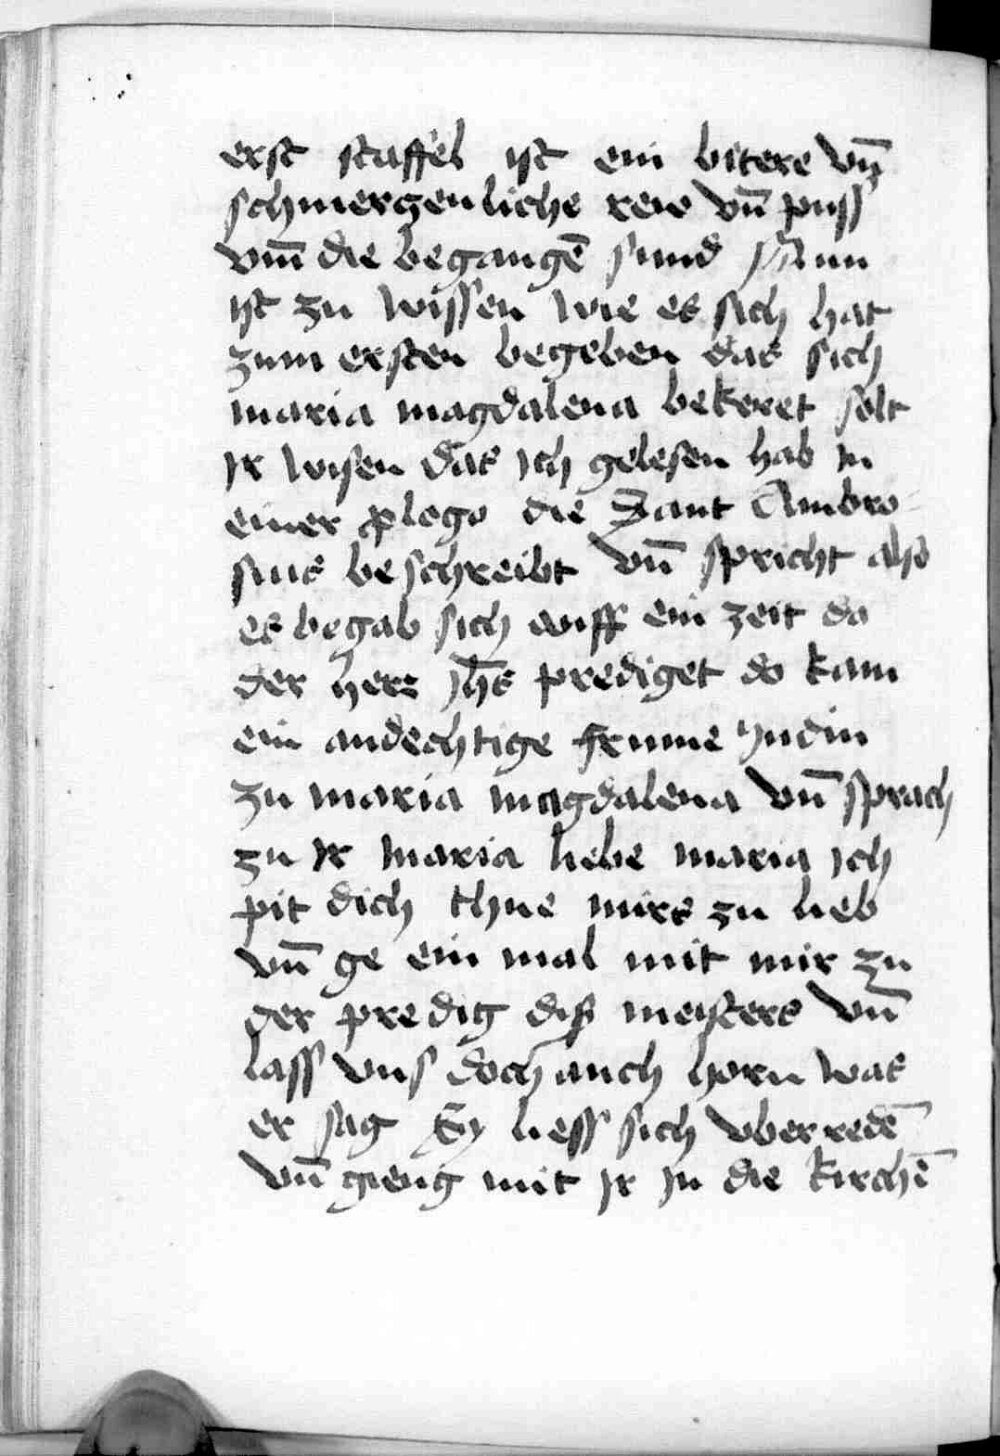 erst staffel ist ein bitere vn̄
schmerczenliche rew vn̄ puss
vm̄ die begangē sund Nun
ist zu wissen wie es sich hat
zum ersten begeben das sich
maria magdalena bekeret solt
Ir wisen das ich gelesen hab in
einer plogo die Sant Ambro-
sius beschreibt vn̄ spricht also
es begab sich auff ein zeit do
der herr jh̄s prediget do kam
ein andechtige frume Judin
zu maria magdalena vn̄ sprach
zu ir maria liebe maria ich
pit dich thue mirs zu lieb
vn̄ ge ein mal mit mir zu
der predig diß meisters vn̄
lass vns doch auch horn was
er sag Sy liess sich vber redē
vn̄ gieng mit ir in die kirchē